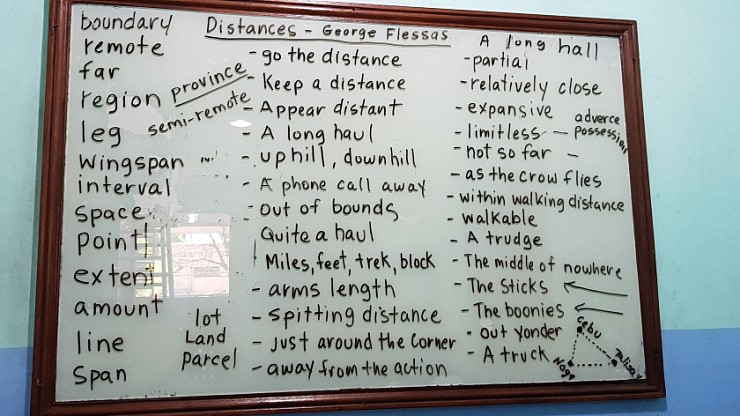 Distances - George Flessas
boundary
remote
far
region province
semi-remote
leg
wingspan
interval
space
point
extent
amount
line
span
lot
Land
parcel
- go the distance
- Keep a distance
- Appear distant
- A long haul
- uphill, downhill
- A phone call away
- out of bounds
Quite a haul
Miles, feet, trek, block
- arms length
- spitting distance
- Just around the corner
- away from the action
A long hall
- partial
- relatively close
- expansive
- limitless - adverce
possession
- not so far -
- as the crow flies
- within walking distance
- walkable
- A trudge
- The middle of nowhere
- The Sticks
- The boonies
- out yonder
- A truck
Cebu
Talisay
Naga